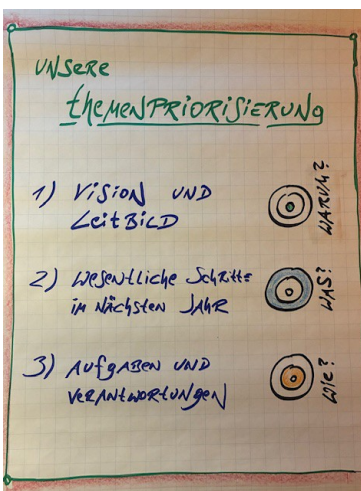 UNSERE
THEMENPRIORISIERUNG
1) VISION UND
LEITBILD
WARUM?
2) WESENTLICHE SCHRITTE
IM NÄCHSTEN JAHR
WAS?
3) AUFGABEN UND
VERANTWORTUNGEN
WIE?